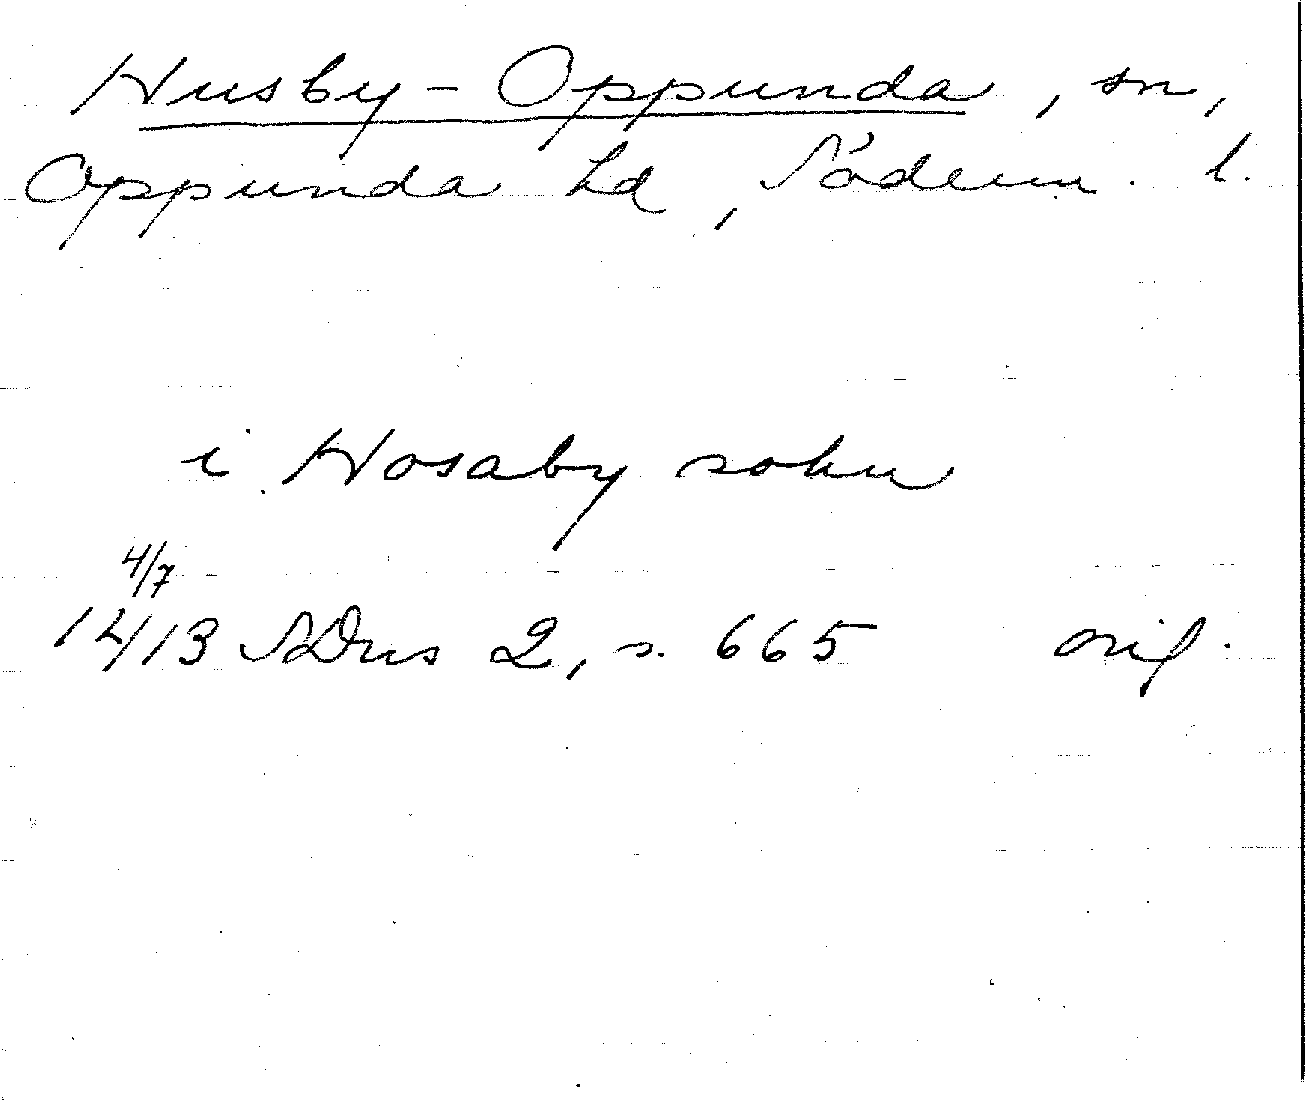 Husby-Oppunda, sn,
Oppunda hd, Söderm. l.
i Hosaby sokn
4/7
1413 SDns 2, s. 665 orig.